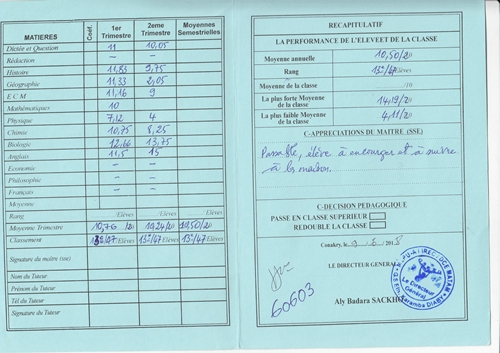 MATIERES Coéf. 1er Trimestre 2eme Trimestre Moyennes Semestrielles
Dictée et Question 11 10,05
Rédaction — —
Histoire 11,83 9,75
Géographie 11,33 2,05
E C M 11,16 9
Mathématiques 10
Physique 7,12 4
Chimie 10,75 8,25
Biologie 12,66 13,75
Anglais 11,5 15
Economie — —
Philosophie — —
Français — —
Moyenne
Rang /Elèves /Elèves /Elèves
Moyenne Trimestre 10,76 /20 /20 10,50/20
Classement /47 Elèves 13e/47 Elèves 13e/47 Elèves
Signature du maître (sse)
Nom du Tuteur
Prénom du Tuteur
Tél du Tuteur
Signature du Tuteur
RECAPITULATIF
LA PERFORMANCE DE L'ELEVEET DE LA CLASSE
Moyenne annuelle 10,50/20
Rang 13e/47 Elèves
Moyenne de la classe /10
La plus forte Moyenne de la classe 14,19/20
La plus faible Moyenne de la classe 4,11/20
C-APPRECIATIONS DU MAITRE (SSE)
Passable, élève à encourager et à suivre
à la maison.
C-DECISION PEDAGOGIQUE
PASSE EN CLASSE SUPERIEUR
REDOUBLE LA CLASSE
Conakry, le 9 6 2018
LE DIRECTEUR GENERAL
60603
Aly Badara SACKHO
Le Directeur Général
DIABY